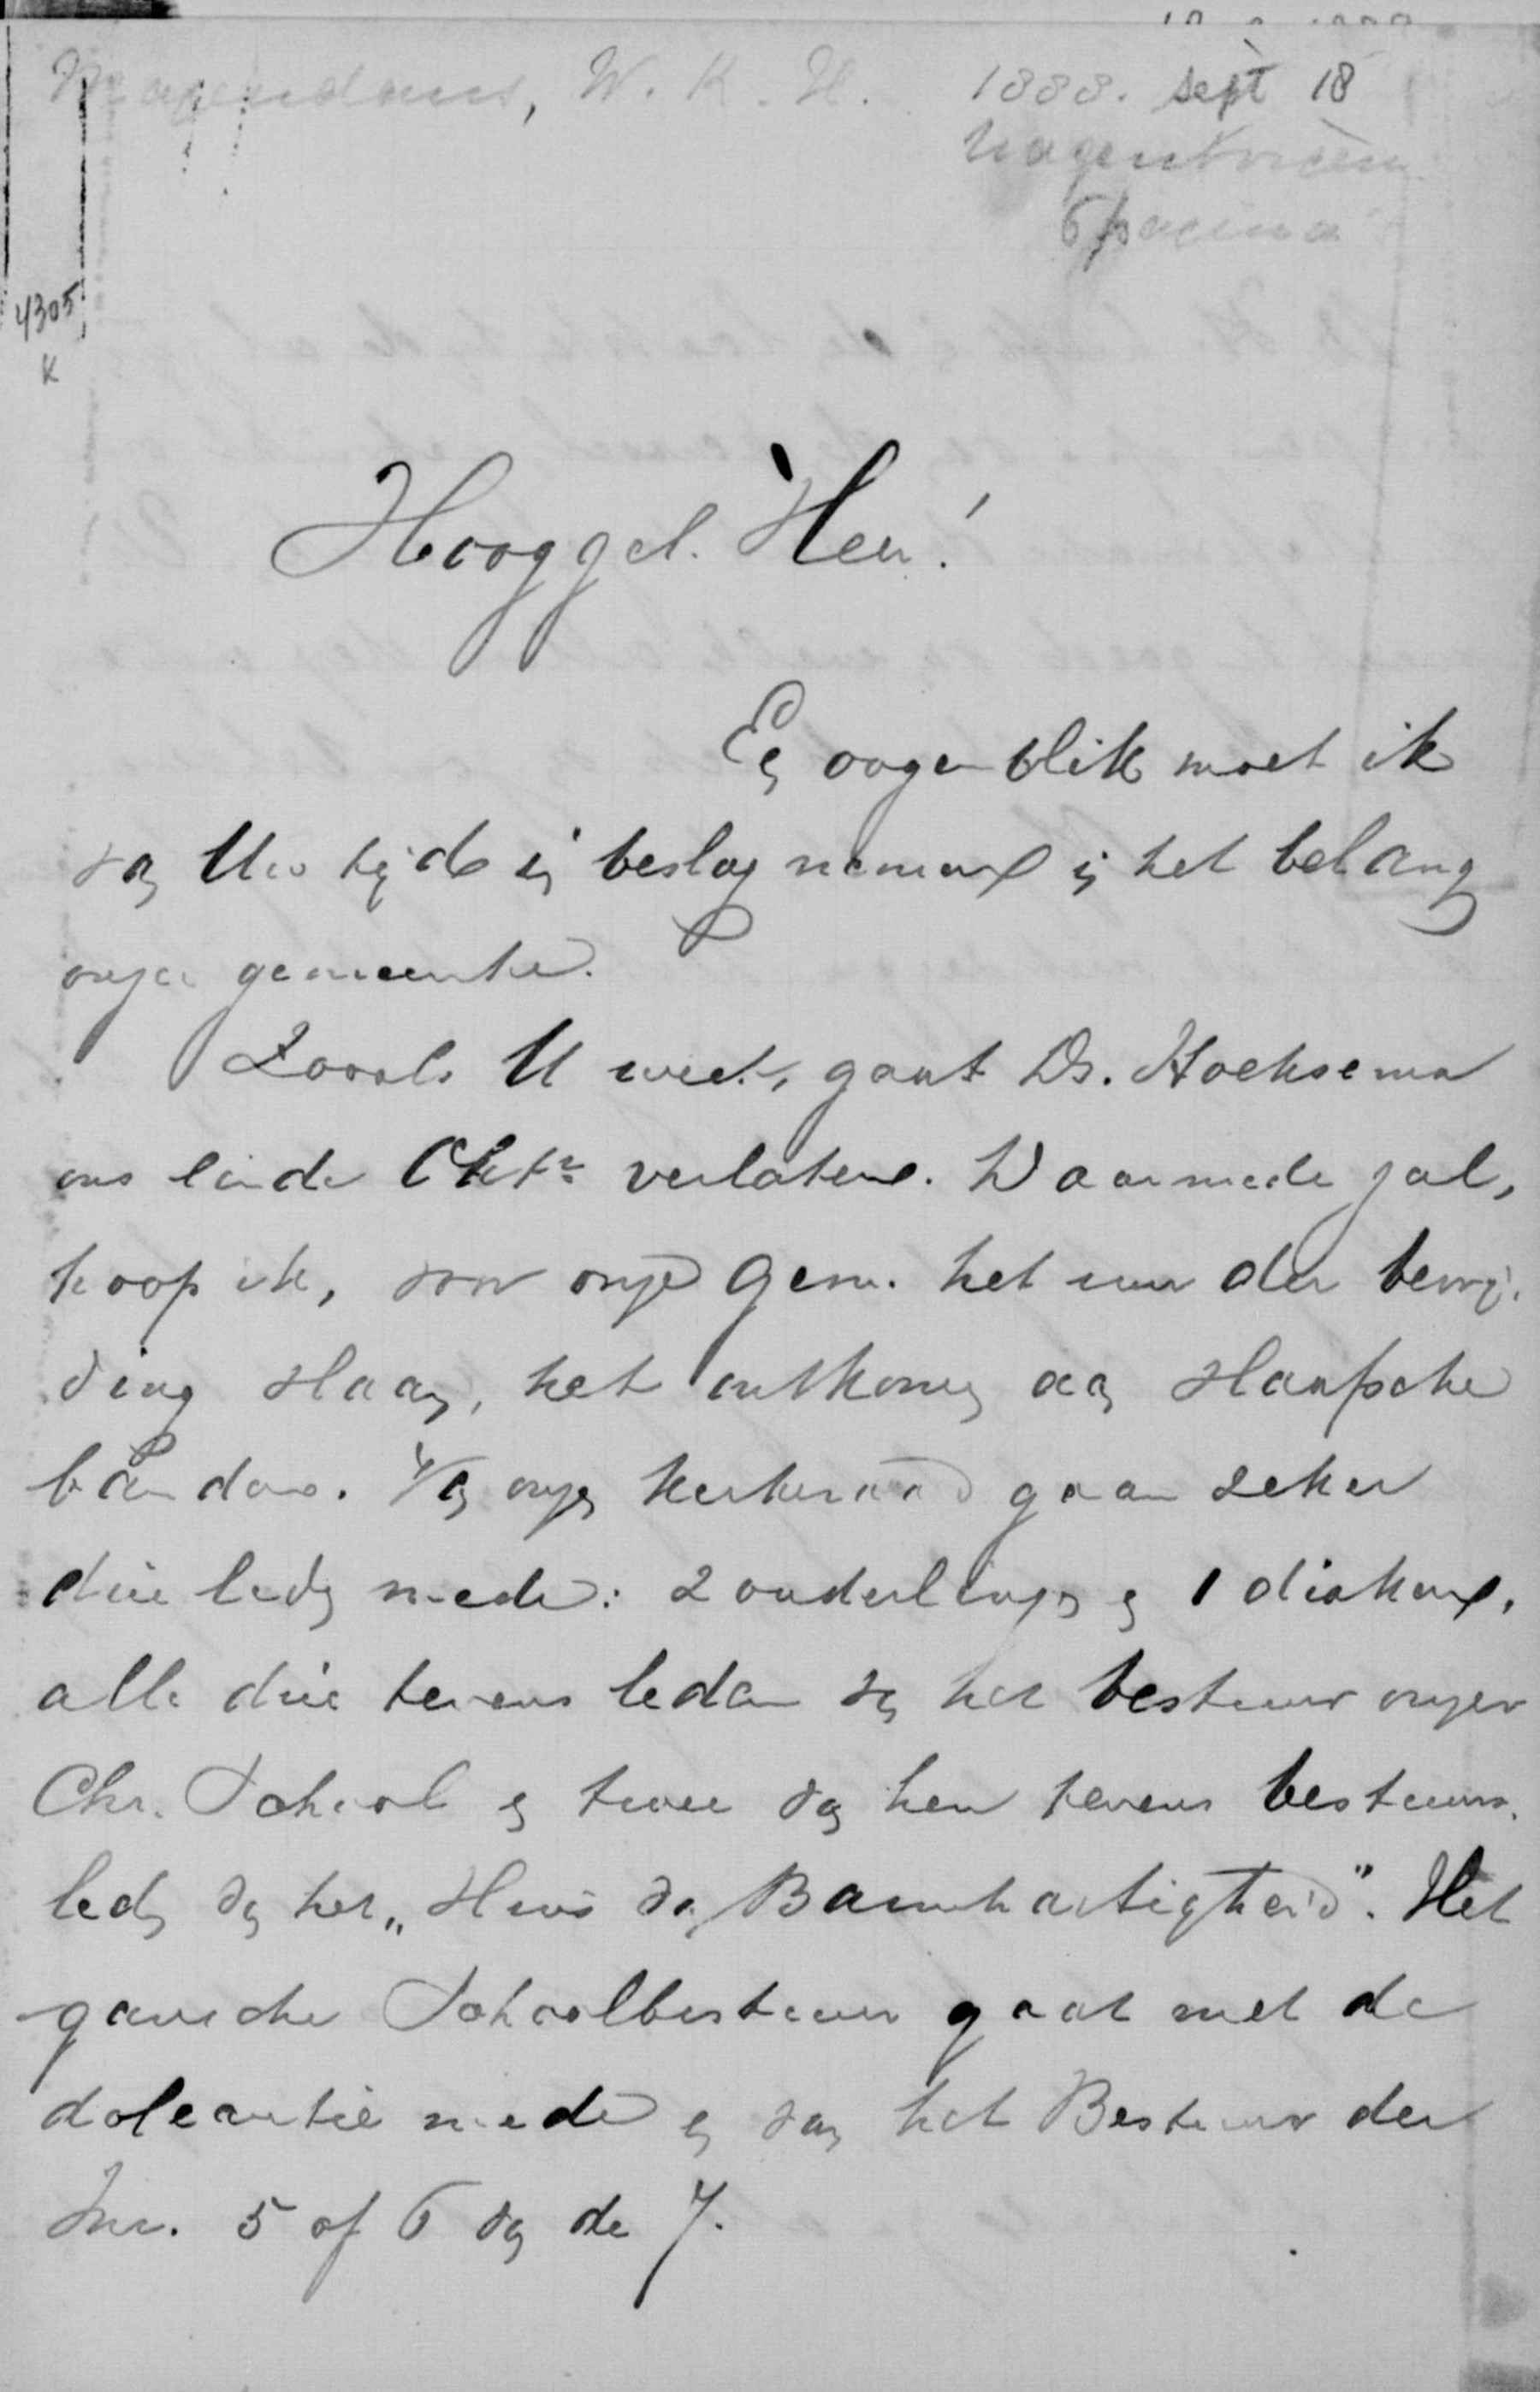 W. K. H. 1888. sept 18
6 pagina
4305
K
Hooggel. Heer!
Een oogenblik moet ik
van Uw tijd in beslag nemen in het belang
onzer gemeente.
Zooals U weet, gaat Ds. Hoeksema
ons einde Octr. verlaten. Daarmede zal,
hoop ik, voor onze Gem. het uur der bevrij-
ding slaan, het ontkomen aan Haagsche
banden. Van onzen Kerkeraad gaan zeker
drie leden mede: 2 ouderlingen en 1 diaken,
alle drie tevens leden van het bestuur onzer
Chr. School en twee van hen tevens bestuurs-
leden van het „Huis van Barmhartigheid". Het
gansche Schoolbestuur gaat met de
doleantie mede en van het Bestuur der
Inr. 5 of 6 van de 7.